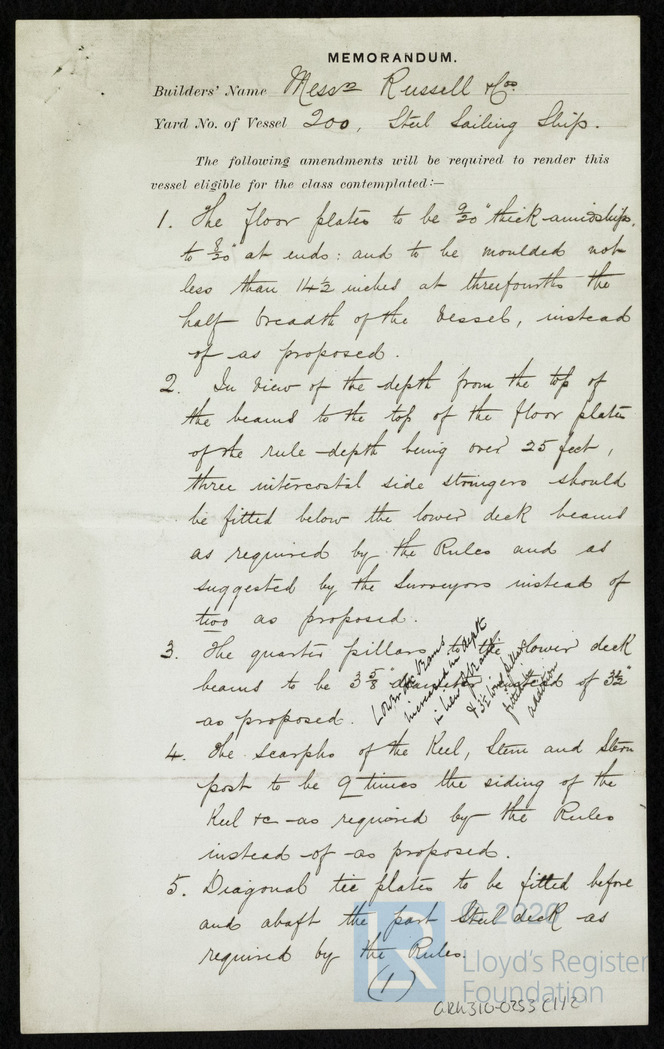 MEMORANDUM.
Builders' Name Messrs Russell & Co.
Yard No. of Vessel 200, Steel Sailing Ship.
The following amendments will be required to render this
vessel eligible for the class contemplated:—
1. The floor plates to be 9/20" thick amidships,
to 8/20" at ends: and to be moulded not
less than 14½ inches at threefourths the
half breadth of the Vessel, instead
of as proposed.
2. In view of the depth from the top of
the beams to the top of the floor plates
of the rule depth being over 25 feet,
three intercostal side stringers should
be fitted below the lower deck beams
as required by the Rules and as
suggested by the Surveyors instead of
two as proposed.
3. The quarter pillars to the lower deck
beams to be 3 5/8" diameter instead of 3½"
as proposed.
Lower dk beams
increased in depth
in lieu of
& 3½" pillars
fitted in
addition
4. The scarphs of the Keel, Stem and Stern
post to be 9 times the siding of the
Keel &c as required by the Rules
instead of as proposed.
5. Diagonal tie plates to be fitted before
and abaft the part Steel deck as
required by the Rules.
(1)
© 2020
LR
Lloyd's Register
Foundation
GRK310-0253 C1/2